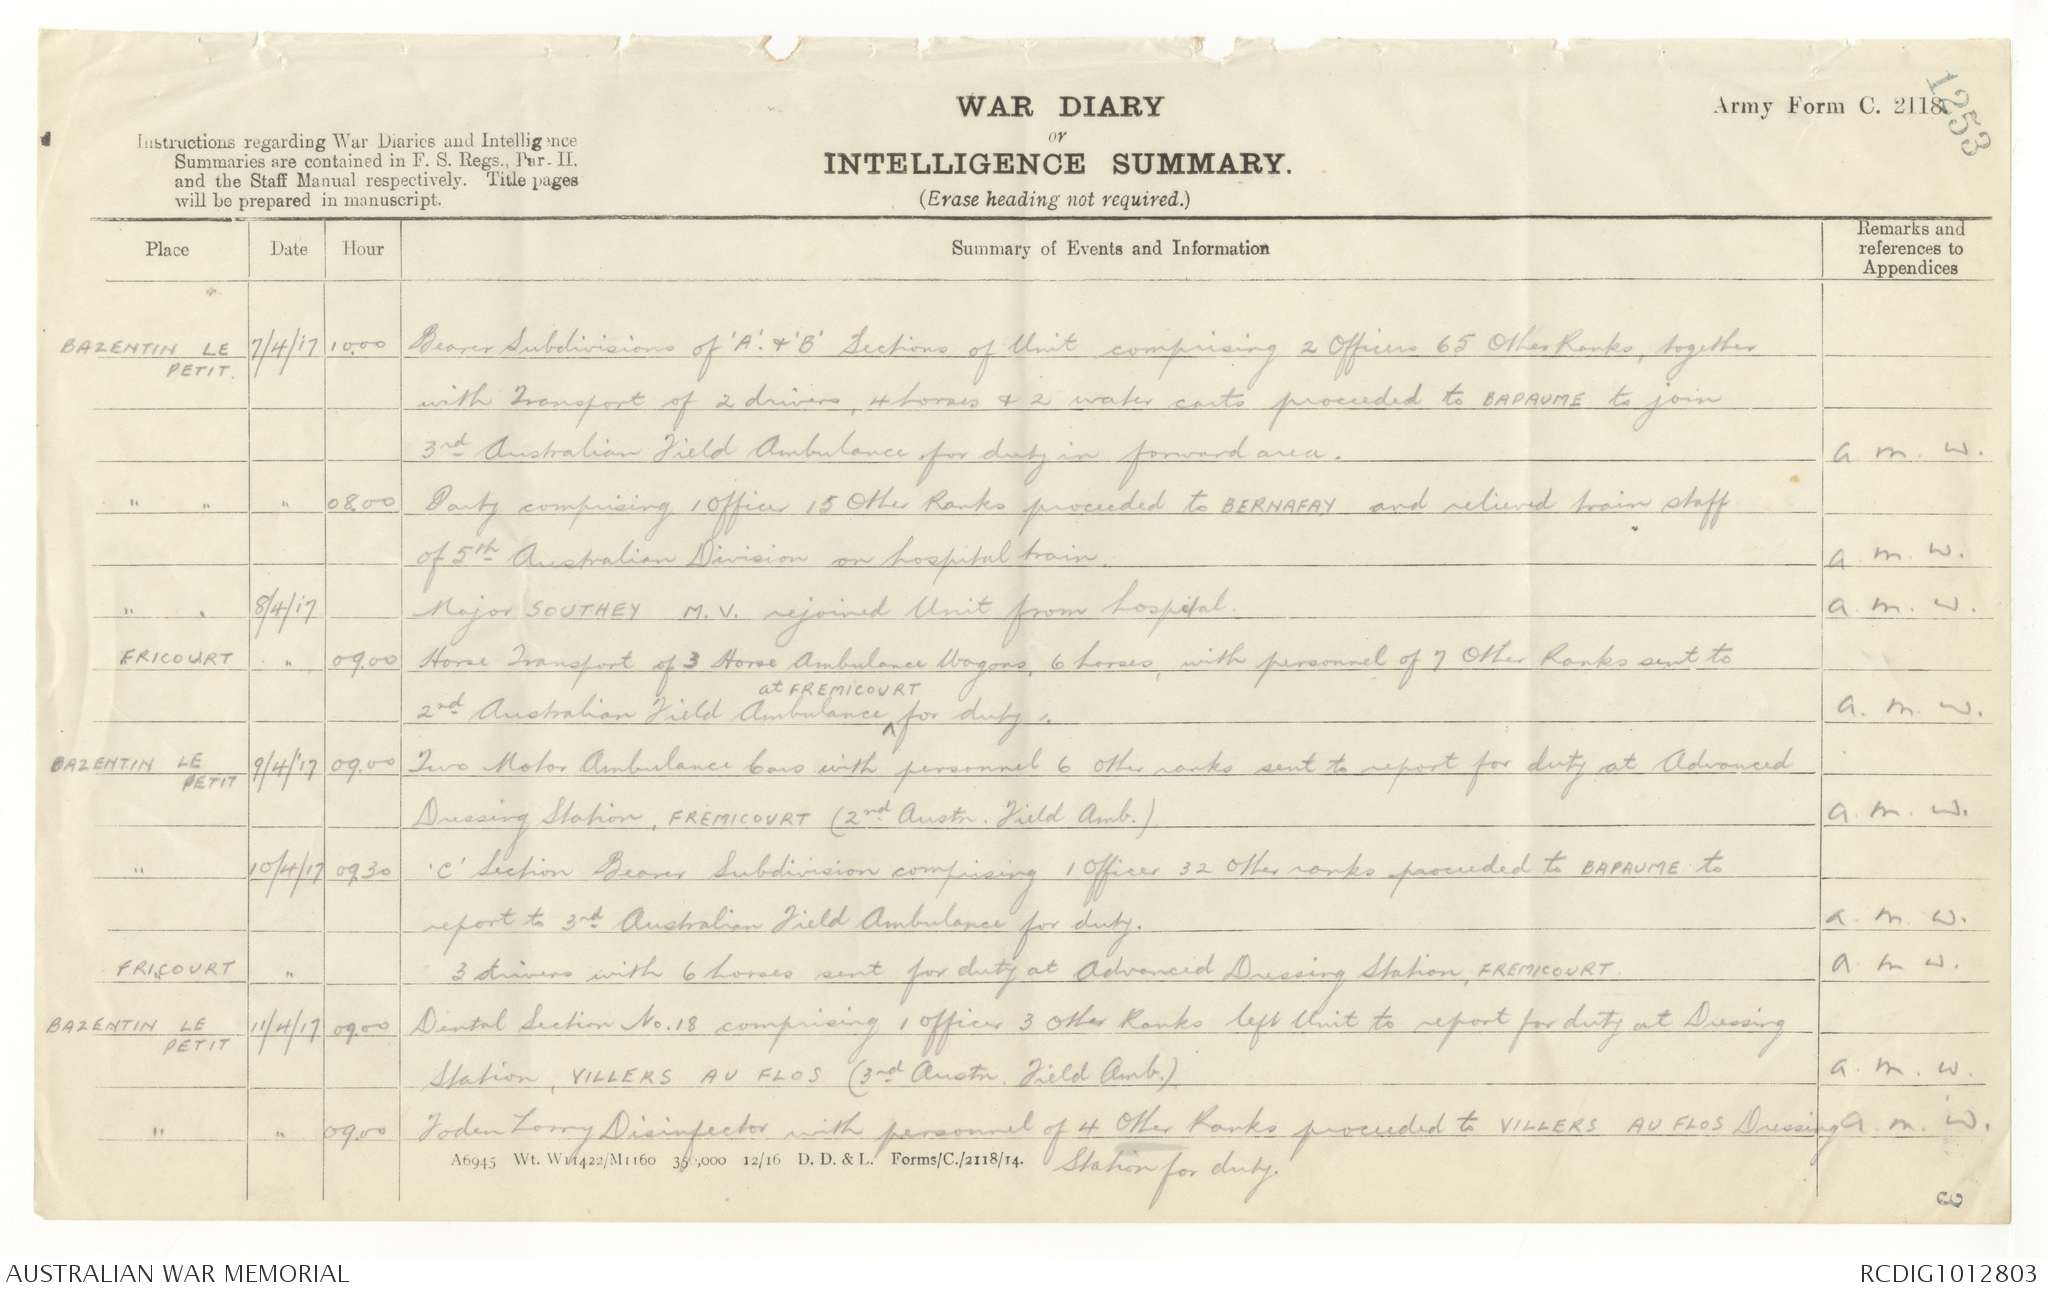 WAR DIARY
or
INTELLIGENCE SUMMARY.
(Erase heading not required.)
Army Form C. 2118.
1253
Instructions regarding War Diaries and Intelligence
Summaries are contained in F. S. Regs., Part II.
and the Staff Manual respectively. Title pages
will be prepared in manuscript.
Place Date Hour Summary of Events and Information Remarks and references to Appendices
BAZENTIN LE PETIT. 7/4/17 10.00 Bearer Subdivisions of 'A'. & 'B' Sections of Unit comprising 2 Officers 65 Other Ranks, together
with Transport of 2 drivers, 4 horses & 2 water carts proceeded to BAPAUME to join
3rd Australian Field Ambulance for duty in forward area. a. m. w.
" " " 08.00 Party comprising 1 Officer 15 Other Ranks proceeded to BERNAFAY and relieved train staff
of 5th Australian Division on hospital train. a. m. w.
" " 8/4/17 Major SOUTHEY M.V. rejoined Unit from hospital. a. m. w.
FRICOURT " 09.00 Horse Transport of 3 Horse Ambulance Wagons, 6 horses, with personnel of 7 Other Ranks sent to
at FREMICOURT
2nd Australian Field Ambulance ^ for duty. a. m. w.
BAZENTIN LE PETIT 9/4/17 09.00 Two Motor Ambulance Cars with personnel 6 other ranks sent to report for duty at Advanced
Dressing Station, FREMICOURT (2nd Austn. Field Amb.) a. m. w.
" 10/4/17 09.30 'C' Section Bearer Subdivision comprising 1 Officer 32 Other ranks proceeded to BAPAUME to
report to 3rd Australian Field Ambulance for duty. a. m. w.
FRICOURT " 3 drivers with 6 horses sent for duty at Advanced Dressing Station, FREMICOURT. a. m. w.
BAZENTIN LE PETIT 11/4/17 09.00 Dental Section No. 18 comprising 1 Officer 3 Other Ranks left Unit to report for duty at Dressing
Station, VILLERS AU FLOS (3rd Austn. Field Amb.) a. m. w.
" " 09.00 Foden Lorry Disinfector with personnel of 4 Other Ranks proceeded to VILLERS AU FLOS Dressing a. m. w.
Station for duty.
A6945 Wt. W11422/M1160 350,000 12/16 D. D. & L. Forms/C./2118/14.
3
AUSTRALIAN WAR MEMORIAL
RCDIG1012803